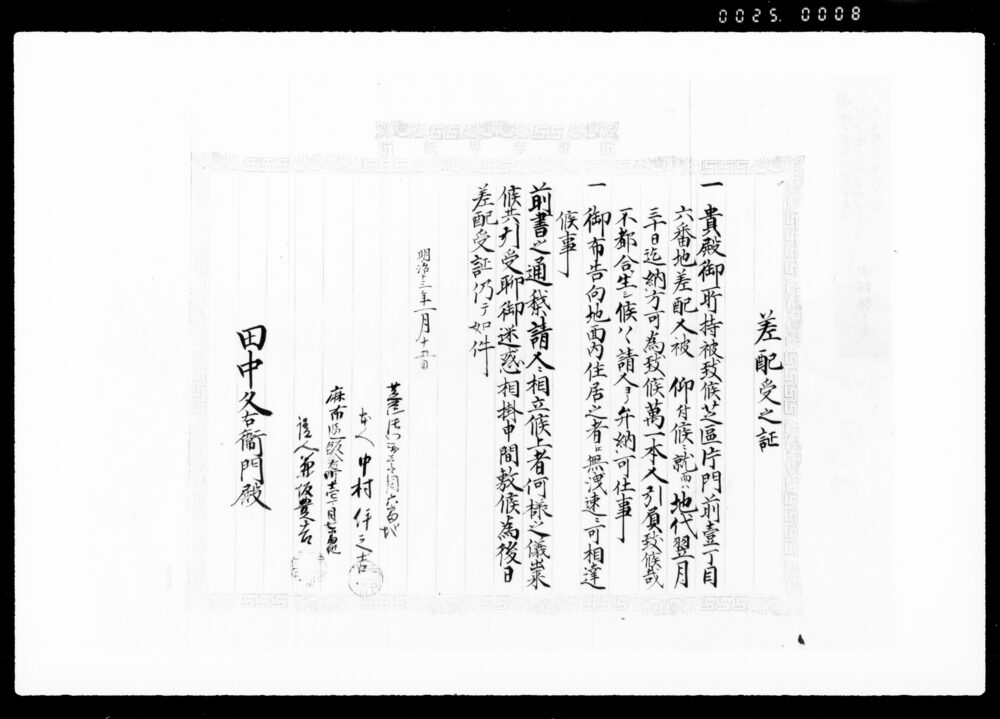 0025.0008
差配受之証
一 貴殿御所持被致候芝區片門前壹丁目
六番地差配人被 仰付候ニ就而ハ地代翌月
三十日迄納方可為致候萬一本人引負致候哉
不都合生シ候ハヽ請人ヨリ弁納可仕事
一 御布告向地面内住居之者ニ無洩速ニ可相達
候事
前書之通 請人ニ相立候上者何様之儀出来
候共引受聊御迷惑相掛申間敷候為後日
差配受証仍テ如件
明治十三年一月十五日
芝區片門前壹丁目六番地
本人 中村伴之吉
麻布區 町 番地
證人 坂豊吉
田中久右衛門殿